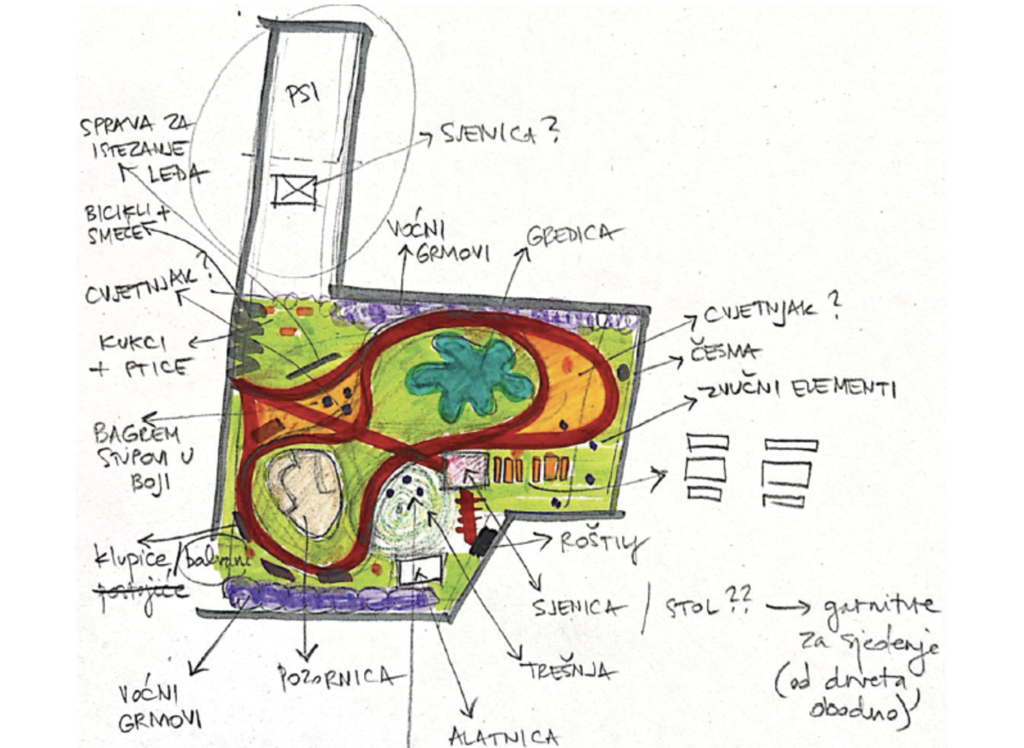 PSI
SPRAVA ZA
ISTEZANJE
LEĐA
SJENICA?
BICIKLI +
SMEĆE
VOĆNI
GRMOVI
GREDICA
CVJETNJAK?
CVJETNJAK?
KUKCI
+ PTICE
ČESMA
ZVUČNI ELEMENTI
BAGREM
STUPOVI U
BOJI
ROŠTILJ
klupice/balvani
SJENICA / STOL?? → garniture
za sjedenje
(od drveta
obodno)
TREŠNJA
POZORNICA
VOĆNI
GRMOVI
ALATNICA